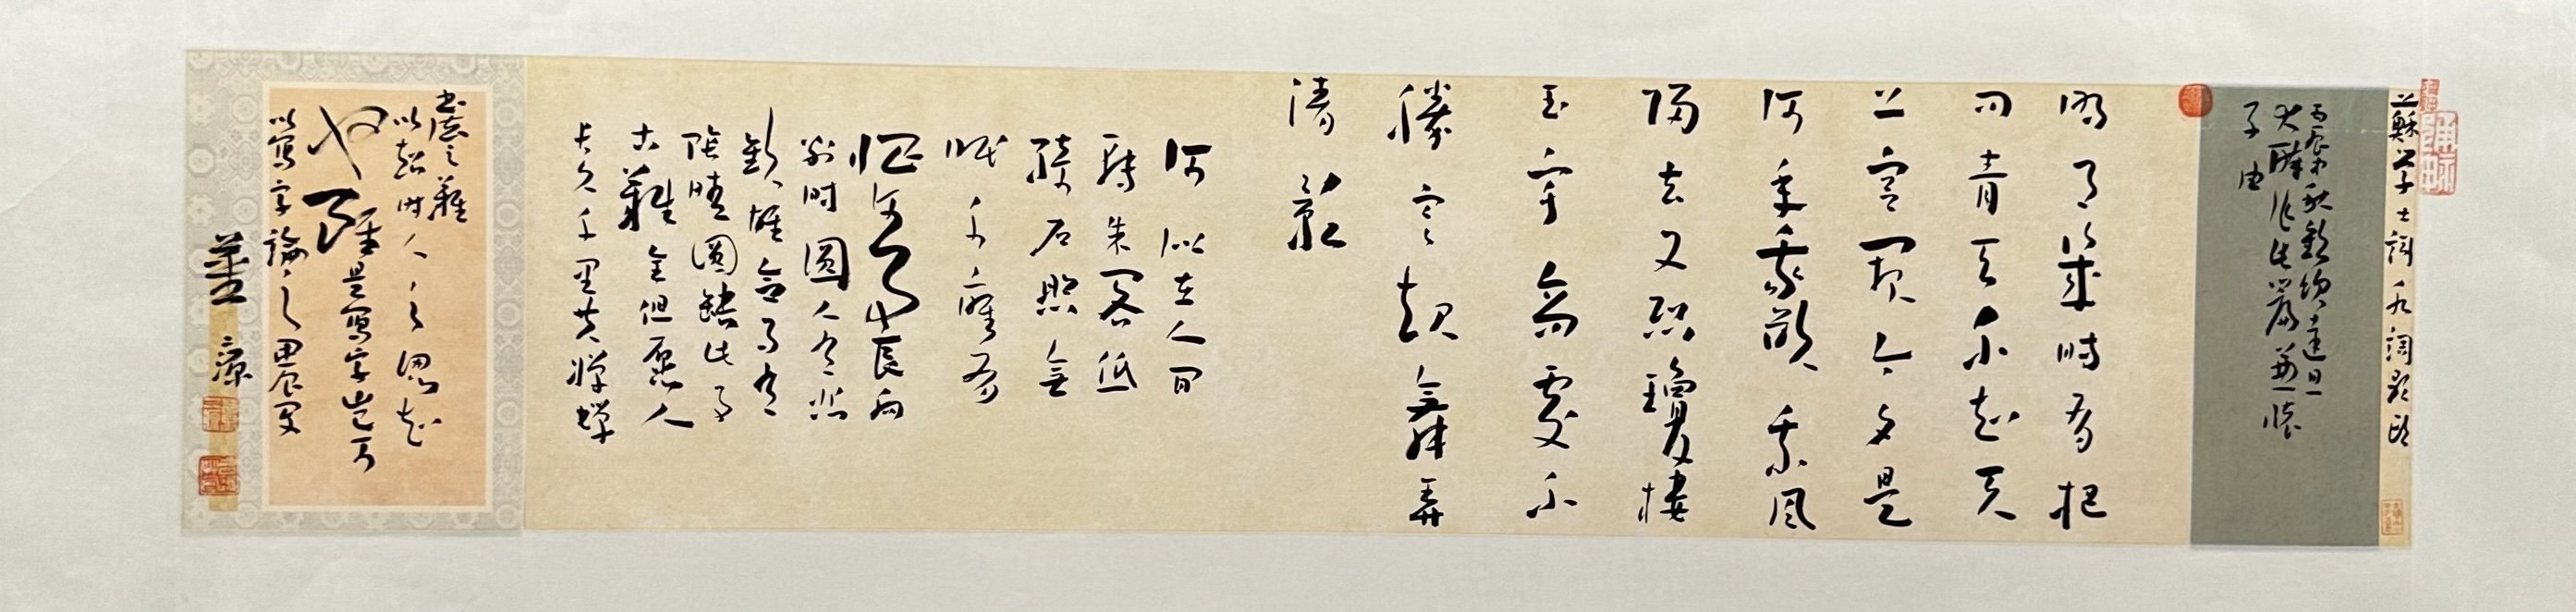 蘇學士詞 水調歌頭
丙辰中秋歡飲達旦
大醉作此篇兼懷
子由
明月幾時有把
問青天不知天
上宮闕今夕是
何年我欲乘風
歸去又恐瓊樓
玉宇高處不
勝寒起舞弄
清影
何似在人間
轉朱閣低
綺戶照無
眠不應有
恨何事長向
別時圓人有悲
歡離合月有
陰晴圓缺此事
古難全但願人
長久千里共嬋娟
書法之難
雖是寫字豈可
以寫字論之甲辰夏